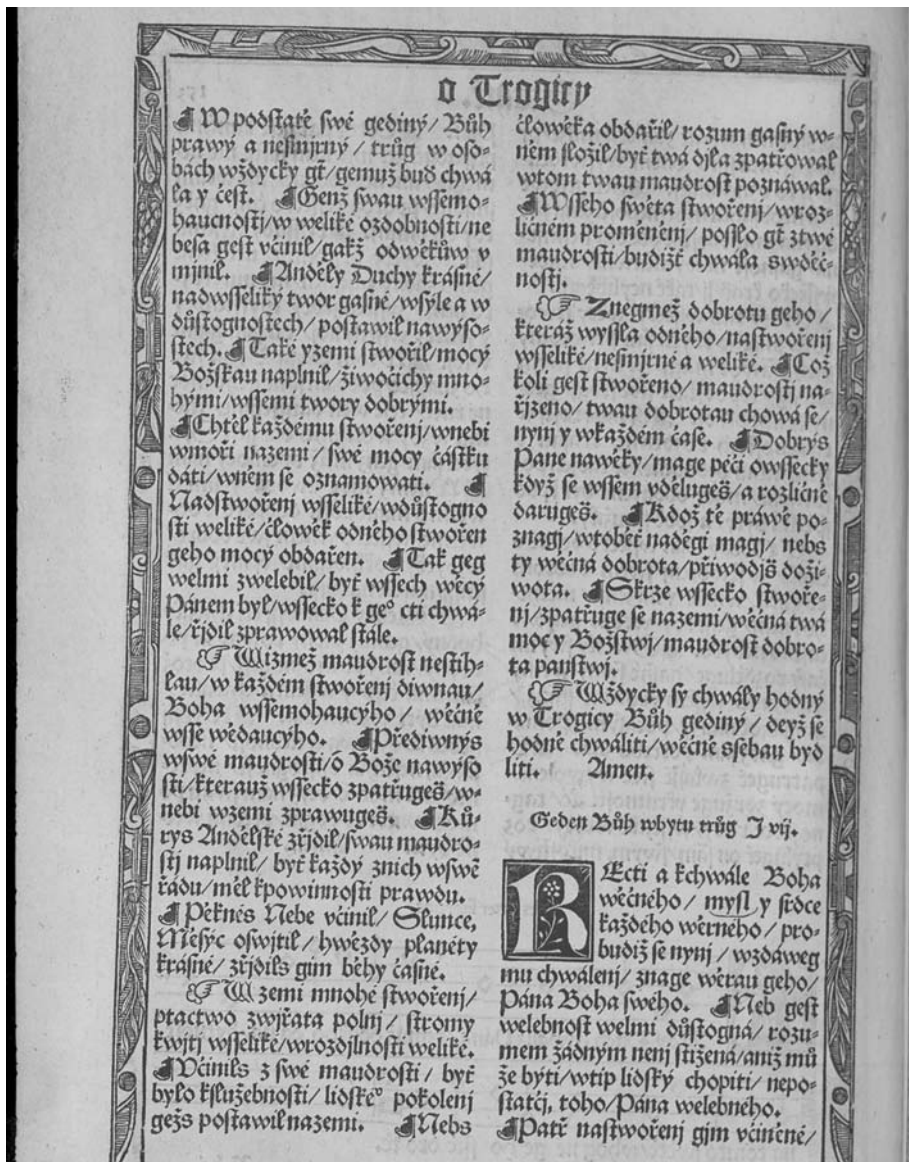 o Trogicy
W podstatě swé gediný / Bůh
prawý a nesmjrný / trůg w oso-
bách wždycky gt̃ / gemuž buď chwá
la y čest. Genž swau wssemo-
haucnostj / w weliké ozdobnosti / ne
besa gest včinil / gakž odwěkůw v
mjnil. Anděly Duchy krásné /
nadwsseliký twor gasné / wsýle a w
důstognostech / postawil nawýso-
stech. Také yzemi stwořil / mocý
Božskau naplnil / žiwočichy mno-
hými / wssemi twory dobrými.
Chtěl každému stwořenj / wnebi
wmoři nazemi / swé mocy částku
dáti / wněm se oznamowati.
Nadstwořenj wsseliké / wdůstogno
sti weliké / člowěk odněho stwořen
geho mocý obdařen. Tak geg
welmi zwelebil / byť wssech wěcý
Pánem byl / wssecko k geᵒ cti chwá-
le / řjdil zprawowal stále.
Wizmež maudrost nestih-
lau / w každém stwořenj diwnau /
Boha wssemohaucýho / wěčně
wsse wědaucýho. Předиwnýs
wswé maudrosti / ó Bože nawýso
sti / kterauž wssecko zpatřugeš / w-
nebi wzemi zprawugeš. Ků-
rys Andělské zřjdil / swau maudro-
stj naplnil / byť každý znich wswé
řádu / měl kpowinnosti prawdu.
Pěknés Nebe včinil / Slunce,
Měsýc oswjtil / hwězdy planéty
krásné / zřjdils gim běhy časné.
W zemi mnohé stwořenj /
ptactwo zwjřata polnj / stromy
kwjtj wsseliké / wrozdjlnosti weliké.
Včinils z swé maudrosti / byť
bylo kslužebnosti / lidskéᵒ pokolenj
gežs postawil nazemi. Nebs
člowěka obdařil / rozum gasný w-
něm složil / byť twá djla zpatřowal
wtom twau maudrost poznáwal.
Wsseho swěta stwořenj / wroz-
ličném proměněnj / posslo gt̃ ztwé
maudrosti / budižť chwála swděč-
nostj.
Znegmež dobrotu geho /
kteráž wyssla odněho / nastwořenj
wsseliké / nesmjrné a weliké. Což
koli gest stwořeno / maudrostj na-
řjzeno / twau dobrotau chowá se /
nynj y wkaždém čase. Dobrýs
Pane nawěky / mage péči owssecky
když se wssem vděluges / a rozličně
daruges. Kdož tě práwě po-
znagj / wtoběť naděgi magj / nebs
ty wěčná dobrota / přiwodjš doži-
wota. Skrze wssecko stwoře-
nj / zpatřuge se nazemi / wěčná twá
moc y Božstwj / maudrost dobro-
ta panstwj.
Wždycky sy chwály hodný
w Trogicy Bůh gediný / deyž se
hodně chwáliti / wěčně ssebau byd
liti. Amen.
Geden Bůh wbytu trůg J vij.
KEcti a kchwále Boha
wěčného / mysl y srdce
každého wěrného / pro-
budiž se nynj / wzdáweg
mu chwálenj / znage wěrau geho /
Pána Boha swého. Neb gest
welebnost welmi důstogná / rozu-
mem žádným nenj stižená / aniž mů
že býti / wtip lidský chopiti / nepo-
stačj, toho / Pána welebného.
Patř nastwořenj gjm včiněné /